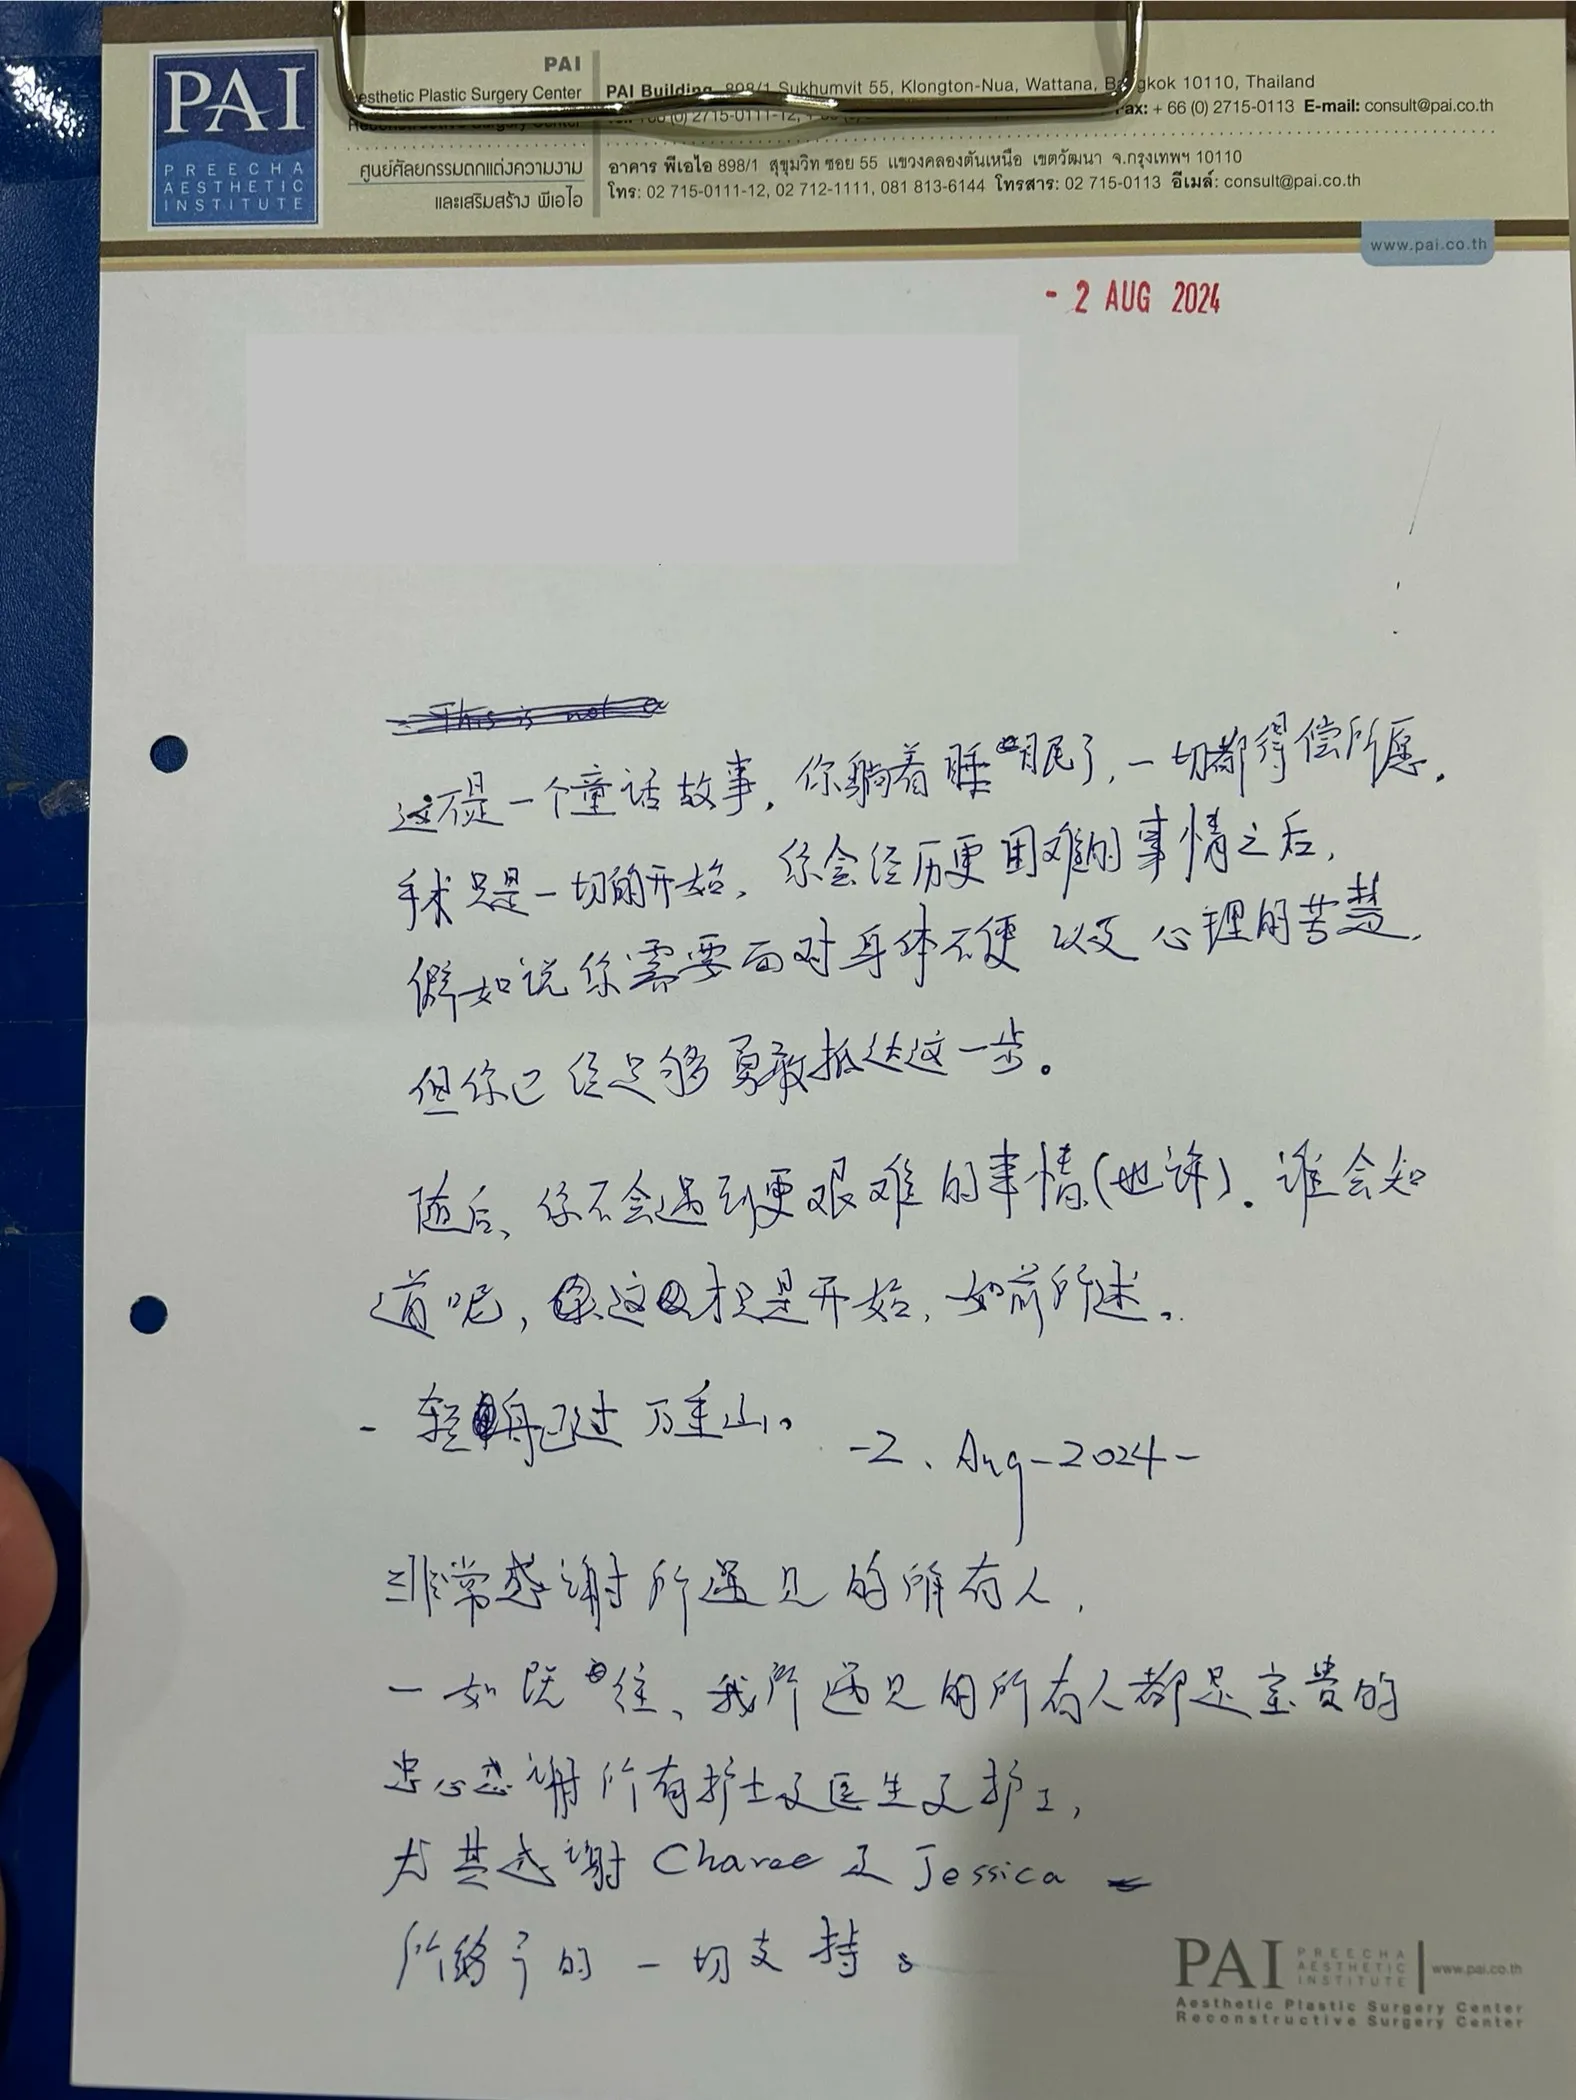 PAI
PREECHA
AESTHETIC
INSTITUTE
PAI
Aesthetic Plastic Surgery Center
Reconstructive Surgery Center
ศูนย์ศัลยกรรมตกแต่งความงาม
และเสริมสร้าง พีเอไอ
PAI Building 898/1 Sukhumvit 55, Klongton-Nua, Wattana, Bangkok 10110, Thailand
Tel: +66 (0) 2715-0111-12, Fax: + 66 (0) 2715-0113 E-mail: consult@pai.co.th
อาคาร พีเอไอ 898/1 สุขุมวิท ซอย 55 แขวงคลองตันเหนือ เขตวัฒนา จ.กรุงเทพฯ 10110
โทร: 02 715-0111-12, 02 712-1111, 081 813-6144 โทรสาร: 02 715-0113 อีเมล์: consult@pai.co.th
www.pai.co.th
- 2 AUG 2024
This is not a
这不是一个童话故事，你躺着睡眠了，一切都得偿所愿。
手术只是一切的开始，你会经历更困难的事情之后，
僻如说你需要面对身体不便以及心理的苦楚，
但你已经足够勇敢抵达这一步。
随后、你不会遇到更艰难的事情(也许)。谁会知
道呢，这才只是开始，如前所述。
- 轻舟已过万重山。 -2、Aug-2024-
非常感谢所遇见的所有人，
一如既往、我所遇见的所有人都是宝贵的
忠心感谢所有护士及医生及护工，
尤其感谢 Charee 及 Jessica
所给予的一切支持。
PAI PREECHA AESTHETIC INSTITUTE www.pai.co.th
Aesthetic Plastic Surgery Center
Reconstructive Surgery Center